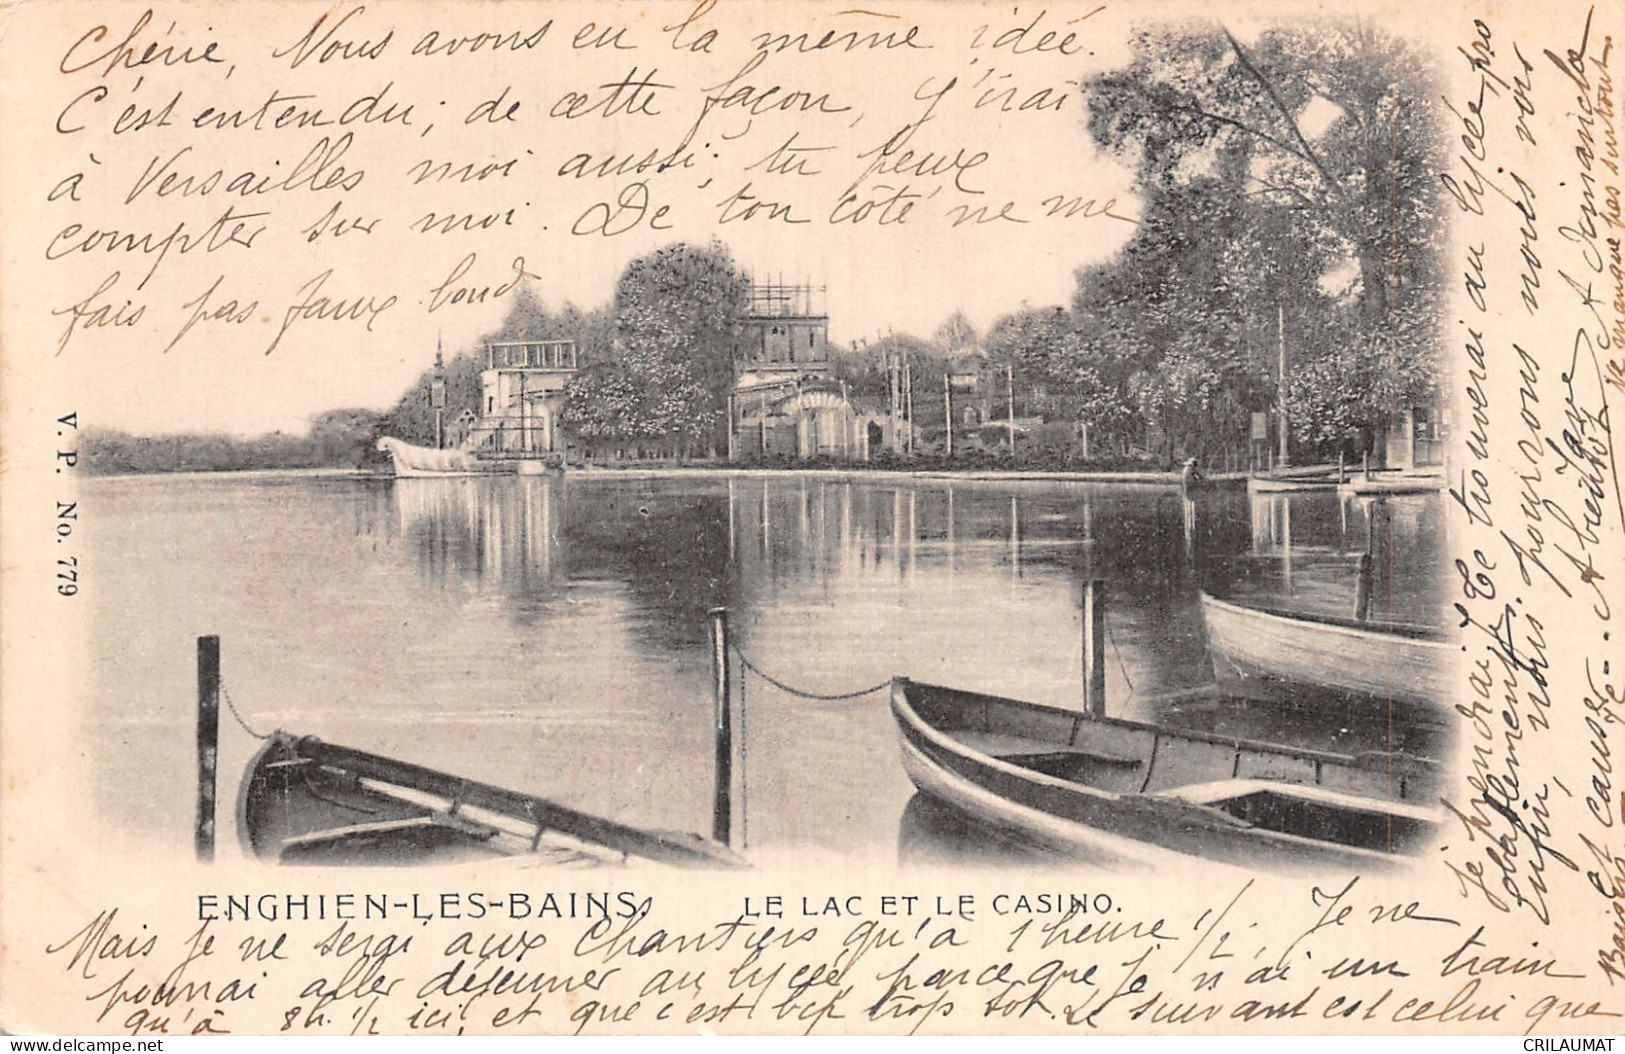 Chérie, Nous avons eu la même idée.
C'est entendu; de cette façon, j'irai
à Versailles moi aussi; tu peux
compter sur moi. De ton côté ne me
fais pas faux bond
V. P. No. 779
ENGHIEN-LES-BAINS. LE LAC ET LE CASINO.
Mais je ne serai aux Chantiers qu'à 1 heure 1/2. Je ne
pourrai aller déjeuner au lycée, parce que je n'ai un train
qu'à 8h. 1/2 ici, et que c'est bcp trop tôt. Le suivant est celui que
Je prendrai. Je te trouverai au lycée pro
bablement. pourrons nous voir
Enfin, nous
Et causer. A dimanche
A bientôt
Ne manque pas surtout.
CRILAUMAT